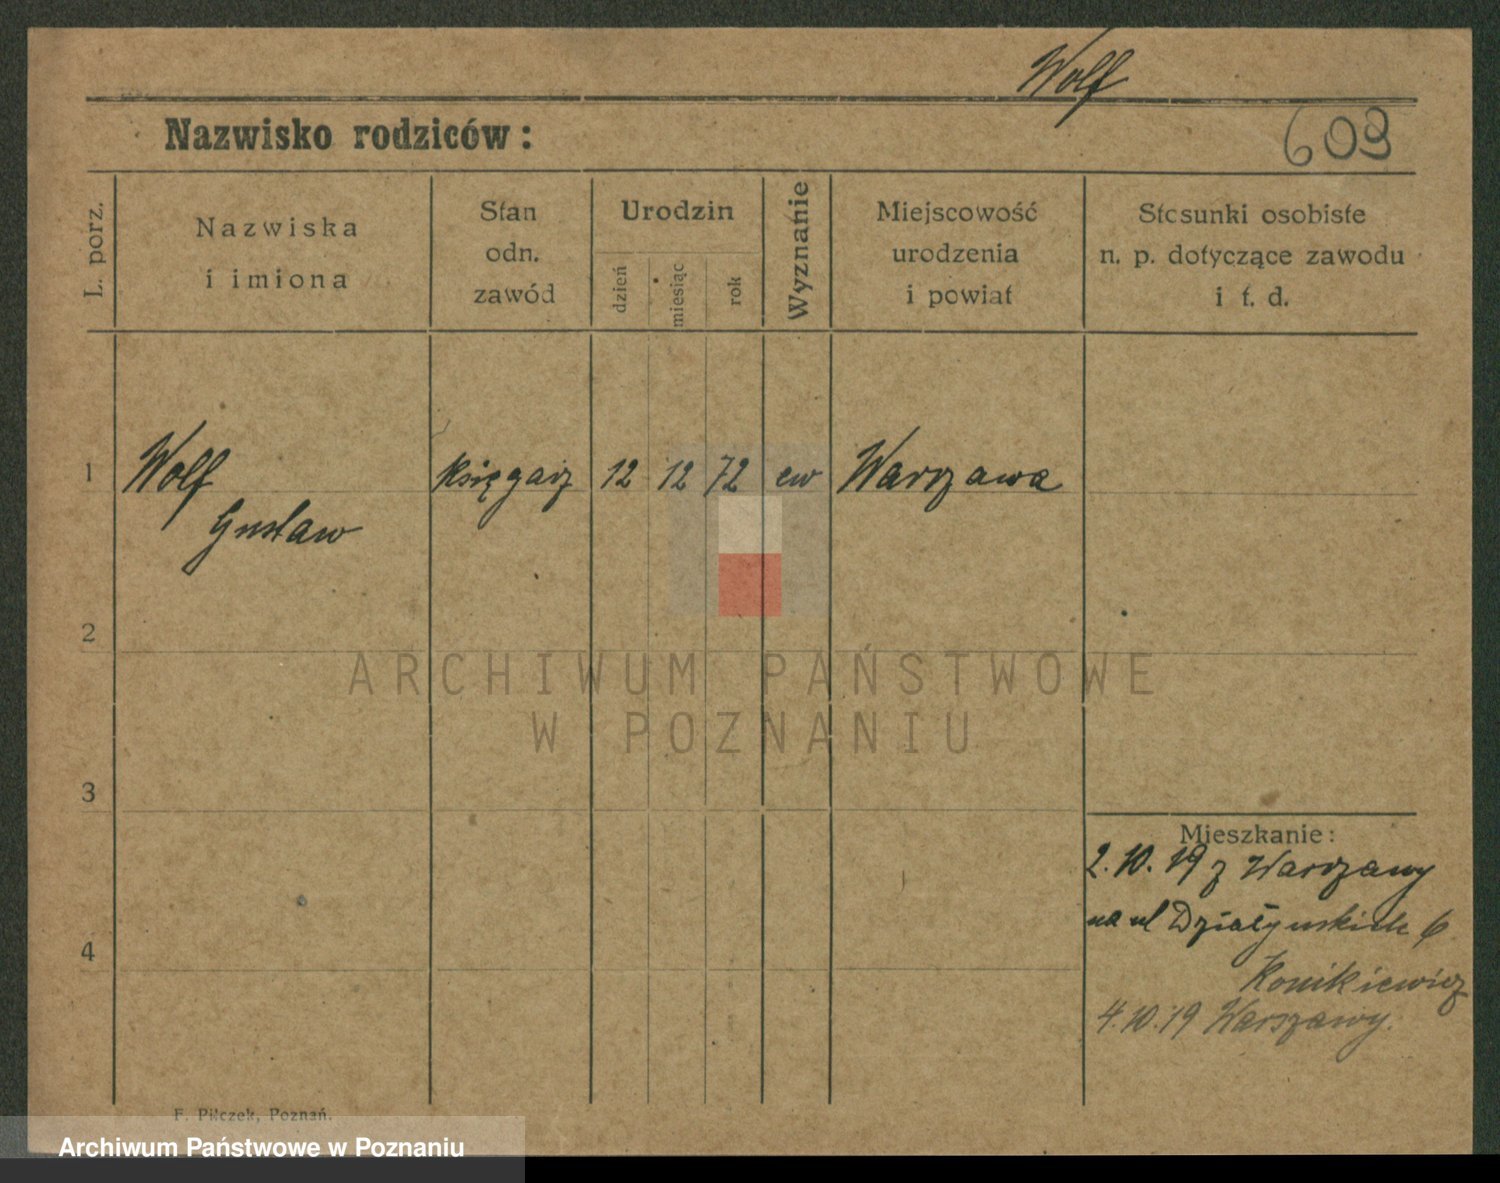 Wolf
Nazwisko rodziców:
609
L. porz.
Nazwiska
i imiona
Stan
odn.
zawód
Urodzin
dzień
miesiąc
rok
Wyznanie
Miejscowość
urodzenia
i powiat
Stosunki osobiste
n. p. dotyczące zawodu
i t. d.
1 Wolf księgarz 12 12 72 ew Warszawa
Gustaw
2
ARCHIWUM PAŃSTWOWE
W POZNANIU
3
Mieszkanie:
2.10.19 z Warszawy
na ul Działyńskich 6
4
Konikiewicz
4.10.19 Warszawy.
F. Pilczek, Poznań.
Archiwum Państwowe w Poznaniu